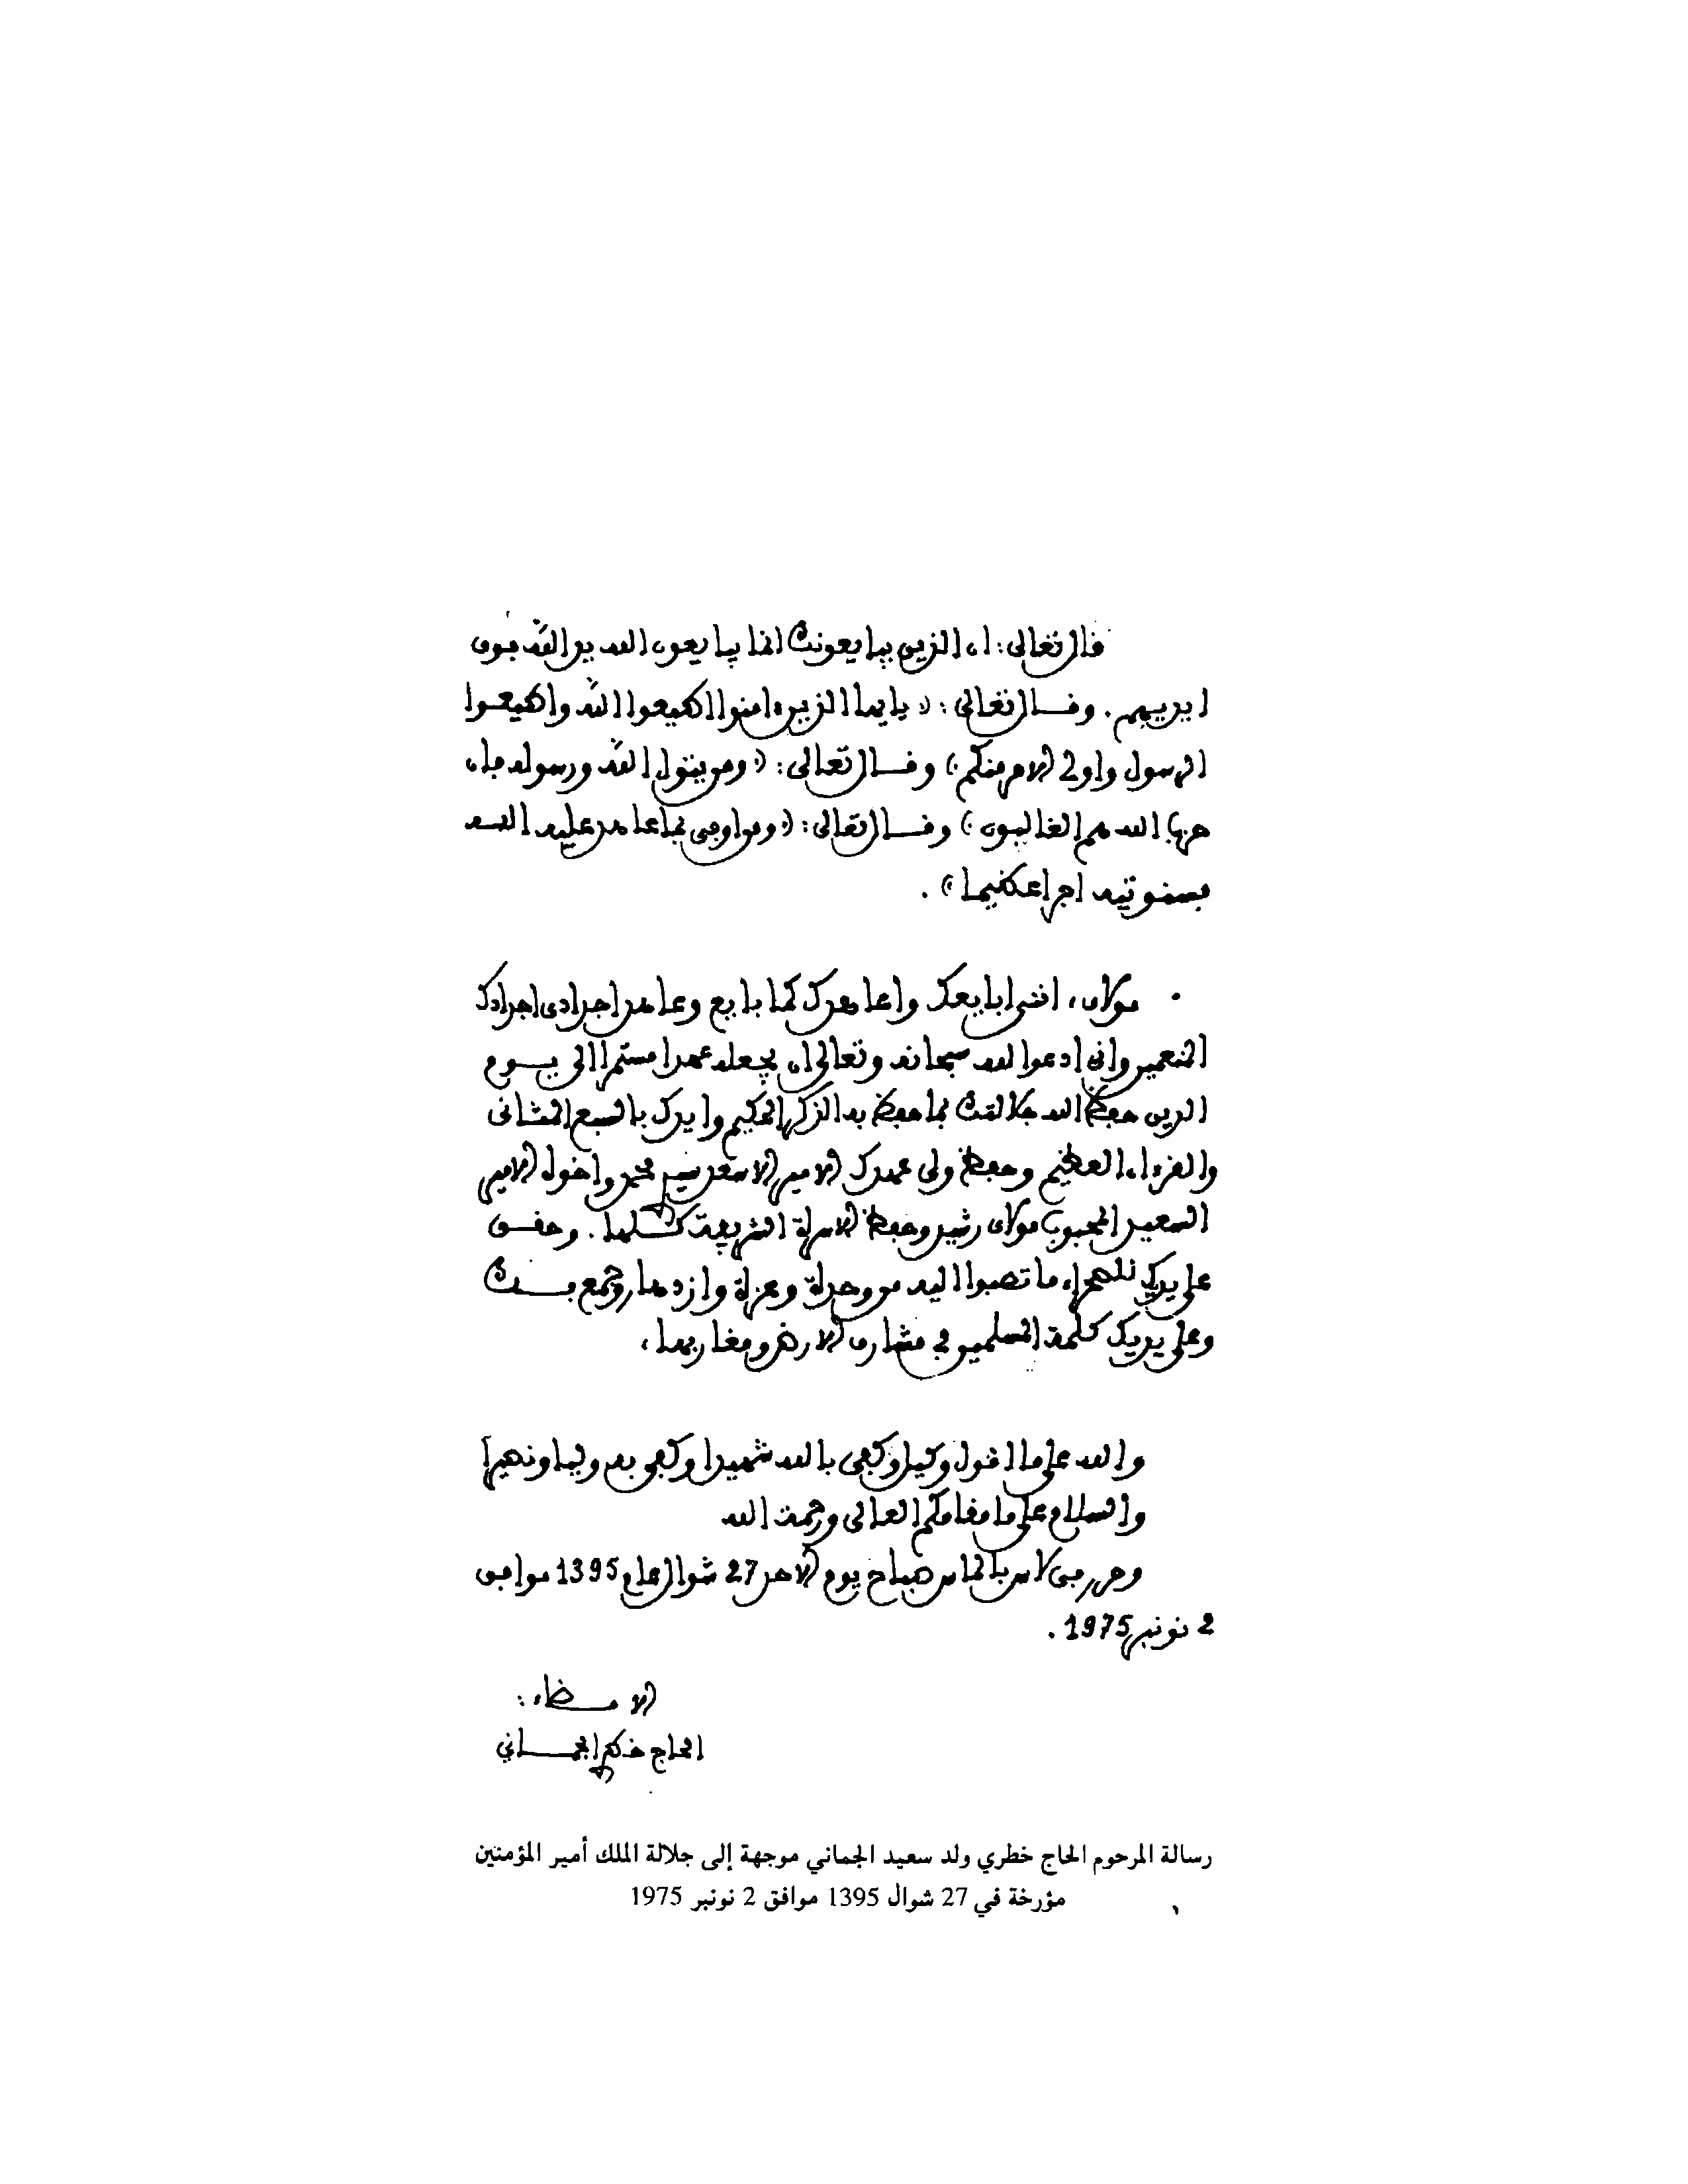 قال تعالى: ان الذين يبايعونك انما يبايعون الله يد الله فوق
ايديهم. وقال تعالى: « يايها الذين ءامنوا اطيعوا الله واطيعوا
الرسول واولى الامر منكم» وقال تعالى: «ومن يتول الله ورسوله فان
حزب الله هم الغالبون» وقال تعالى: «ومن اوفى بما عاهد عليه الله
فسنوتيه اجرا عظيما» .
• مولاى، اننى ابايعك واعاهدك كما بايع وعاهد اجدادى اجدادك
المنعمين وانى ادعوا الله سبحانه وتعالى ان يجعله عهدا مستمرا الى يوم
الدين حفظ الله جلالتك بما حفظ به الذكر الحكيم وايدك بالسبع المثانى
والقرءان العظيم وحفظ ولى عهدك الامير الاسعد سيدى محمد واخوه الامير
السعيد المحبوب مولاى رشيد وحفظ الاسرة الشريفة كلها. وحقق
على يديك للصحراء ما تصبوا اليه من وحدة وعزة وازدهار وجمع بك
وعلى يديك كلمة المسلمين في مشارق الارض ومغاربها،
والله على ما اقول وكيل وكفى بالله شهيدا وكفى به وليا ونصيرا
والسلام على مقامكم العالى ورحمة الله
وحرر فى لاس بالماس صباح يوم الاحد 27 شوال عام 1395 موافق
2 نونبر 1975 .
الامضاء:
الحاج خطرى الجماني
رسالة المرحوم الحاج خطري ولد سعيد الجماني موجهة إلى جلالة الملك أمير المؤمنين
مؤرخة في 27 شوال 1395 موافق 2 نونبر 1975